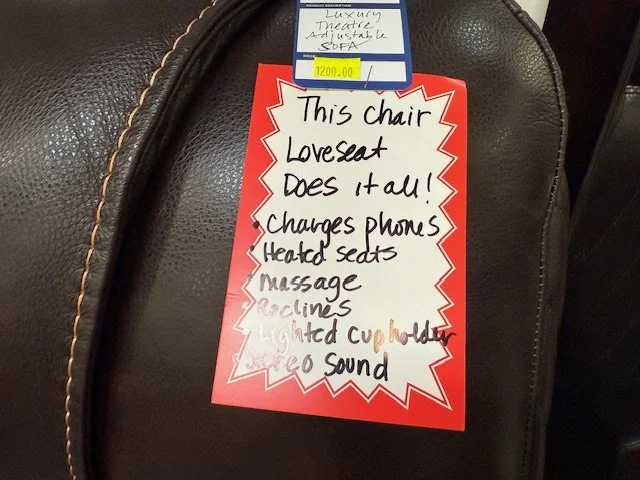 PRODUCT DESCRIPTION:
Luxury
Theatre
Adjustable
SOFA
PRICE:
1200.00 /
This chair
Loveseat
Does it all!
• Charges phones
• Heated seats
• massage
• Reclines
Lighted cupholder
Stereo Sound